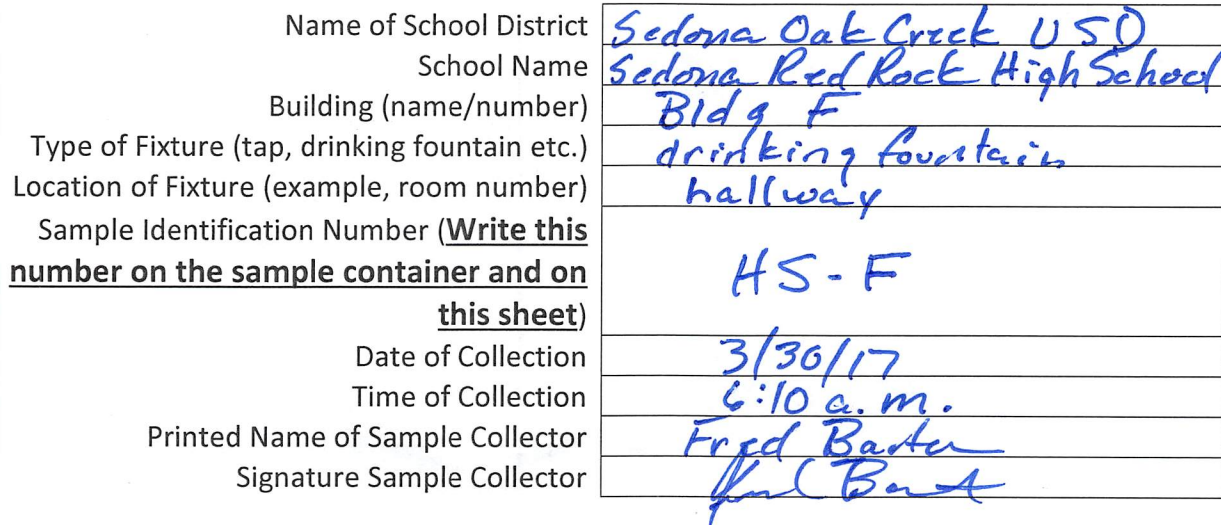 Name of School District Sedona Oak Creek USD
School Name Sedona Red Rock High School
Building (name/number) Bldg F
Type of Fixture (tap, drinking fountain etc.) drinking fountain
Location of Fixture (example, room number) hallway
Sample Identification Number (Write this
number on the sample container and on HS-F
this sheet)
Date of Collection 3/30/17
Time of Collection 6:10 a.m.
Printed Name of Sample Collector Fred
Signature Sample Collector